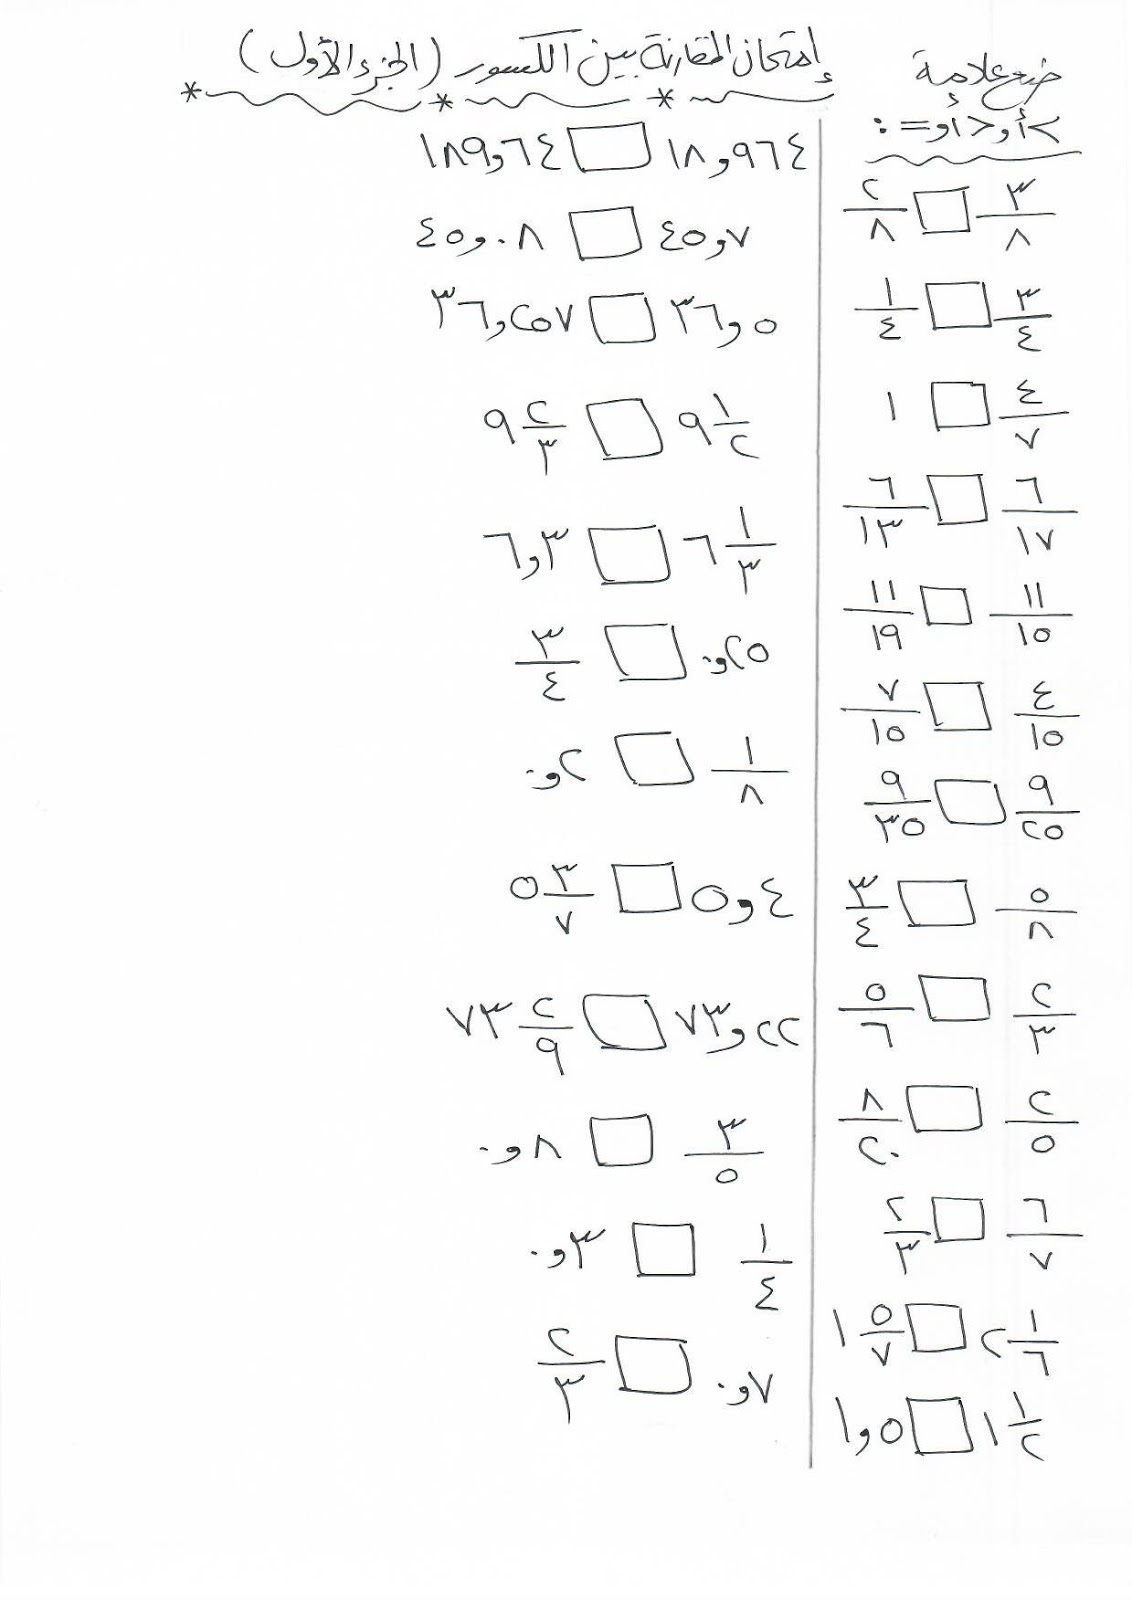 إمتحان المقارنة بين الكسور (الجزء الأول)
ضع علامة
> أو < أو = :
٣/٨ □ ٢/٨
٣/٤ □ ١/٤
٤/٧ □ ١
٦/١٧ □ ٦/١٣
١١/١٥ □ ١١/١٩
٤/١٥ □ ٧/١٥
٩/٢٥ □ ٩/٣٥
٥/٨ □ ٣/٤
٢/٣ □ ٥/٦
٢/٥ □ ٨/٢٠
٦/٧ □ ٢/٣
٢ ١/٦ □ ١ ٥/٧
١ ١/٢ □ ١و٥
١٨و٩٦٤ □ ١٨٩و٦٤
٤٥و٧ □ ٤٥و٠٨
٣٦و٥ □ ٣٦و٢٥٧
٩ ١/٢ □ ٩ ٢/٣
٦ ١/٣ □ ٦و٣
٠و٢٥ □ ٣/٤
١/٨ □ ٠و٢
٥و٤ □ ٥ ٣/٧
٧٣و٢٢ □ ٧٣ ٢/٩
٣/٥ □ ٠و٨
١/٤ □ ٠و٣
٠و٧ □ ٢/٣